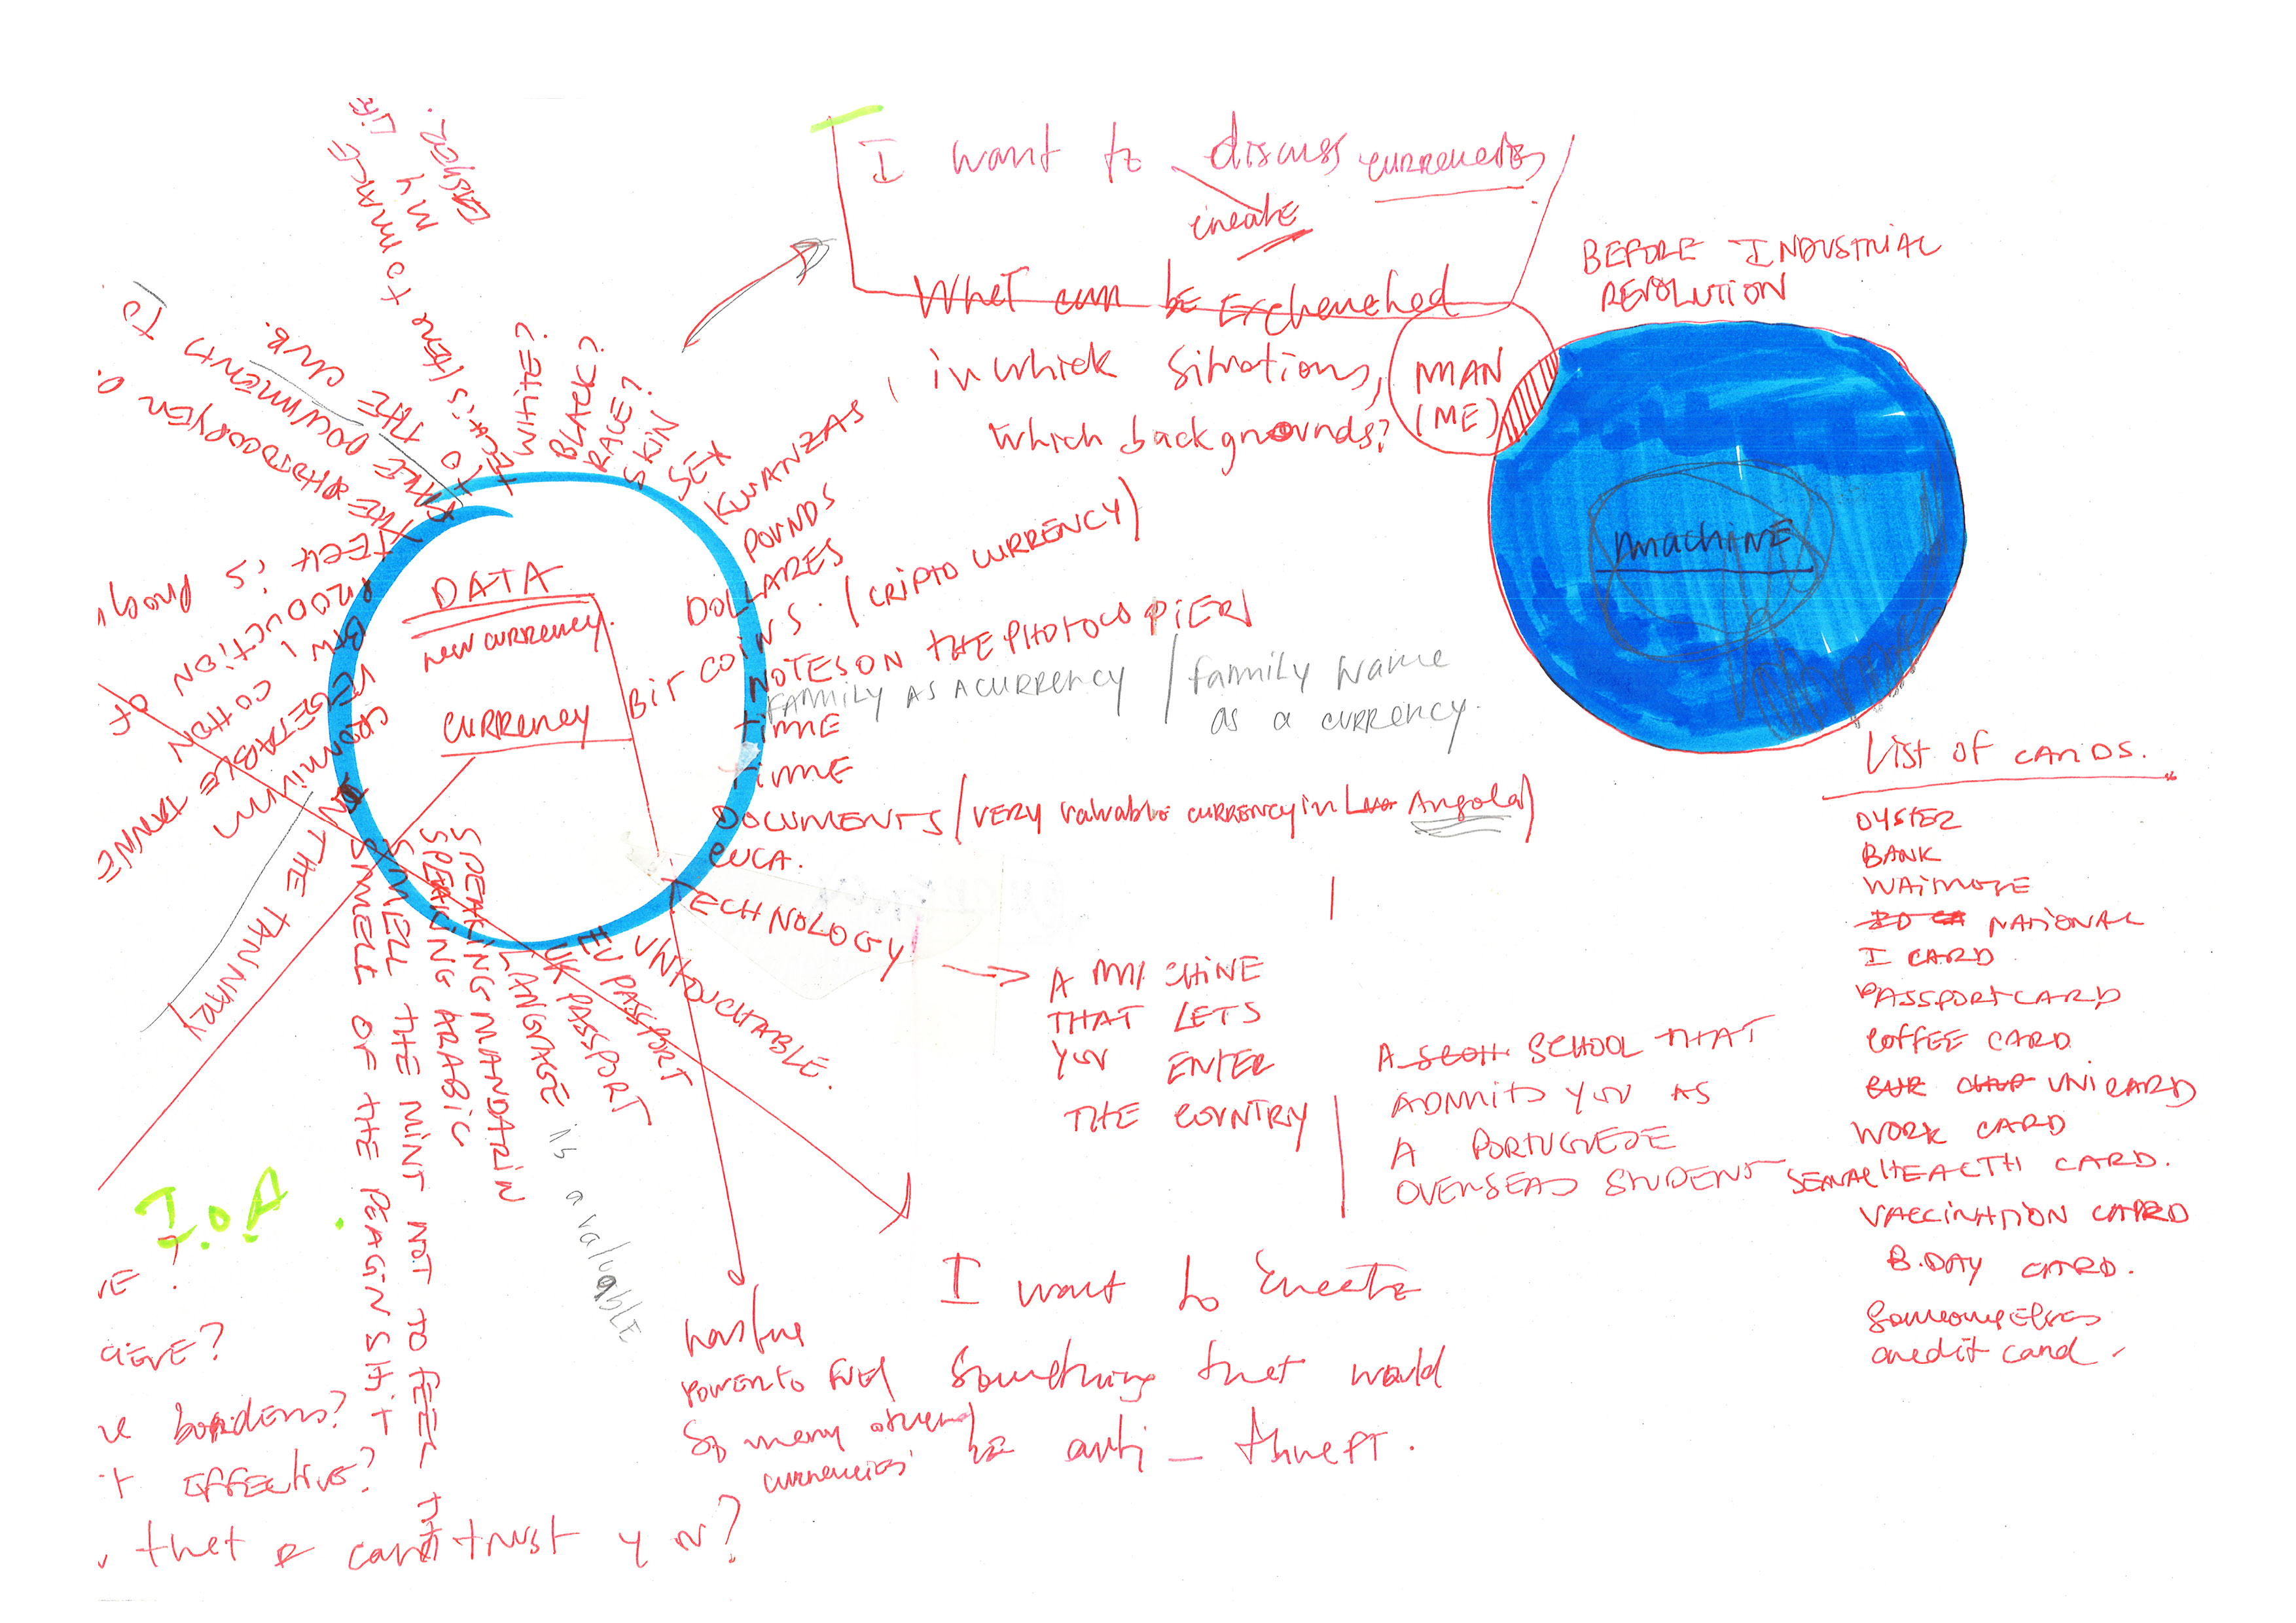 I want to discuss currencies
create
What can be Exchenched
in which situations,
which backgrounds?
MAN
(ME)
BEFORE INDUSTRIAL
REVOLUTION
machine
TO MAKE
MY LIFE
EASIER.
WHITE?
BLACK?
RACE?
SKIN
SEX
KWANZAS
POUNDS
DOLLARES
BIT COINS. (CRIPTO CURRENCY)
NOTES ON THE PHOTOCOPIER
FAMILY AS A CURRENCY / family Name
as a currency.
TIME
TIME
DOCUMENTS (VERY valuable currency in Angola)
CUCA.
TECHNOLOGY
UNTOUCHABLE.
EU PASSPORT
UK PASSPORT
LANGUAGE is a valuable
SPEAKING MANDARIN
SPEAKING ARABIC
SMELL THE MINT NOT TO FEEL THE
SMELL OF THE PEAGINSHIT
IN THE TANNARY
CROMIVIM
VEGETABLE TANNE
BTW COTTON
PRODUCTION OF
TECH IS
THE PHOTOCOPYER
MAKE DOCUMENTS TO
TO THE CLUB.
DATA
new currency.
CURRENCY
A MACHINE
THAT LETS
YOU ENTER
THE COUNTRY
A SCHOOL THAT
ADMITS YOU AS
A PORTUGUESE
OVERSEAS STUDENT
List of CARDS.
OYSTER
BANK
WAITROSE
NATIONAL
I CARD
PASSPORT CARD
COFFEE CARD
UNI CARD
WORK CARD
SEXUAL HEALTH CARD.
VACCINATION CARD
B.DAY CARD.
Someone elses
credit card.
I.O.A.
VE?
CIEVE?
ve borders?
t EFFECtive?
that I can trust you?
has the
power to fuel
so many other
currencies
I want to create
Something that would
be anti - theft.